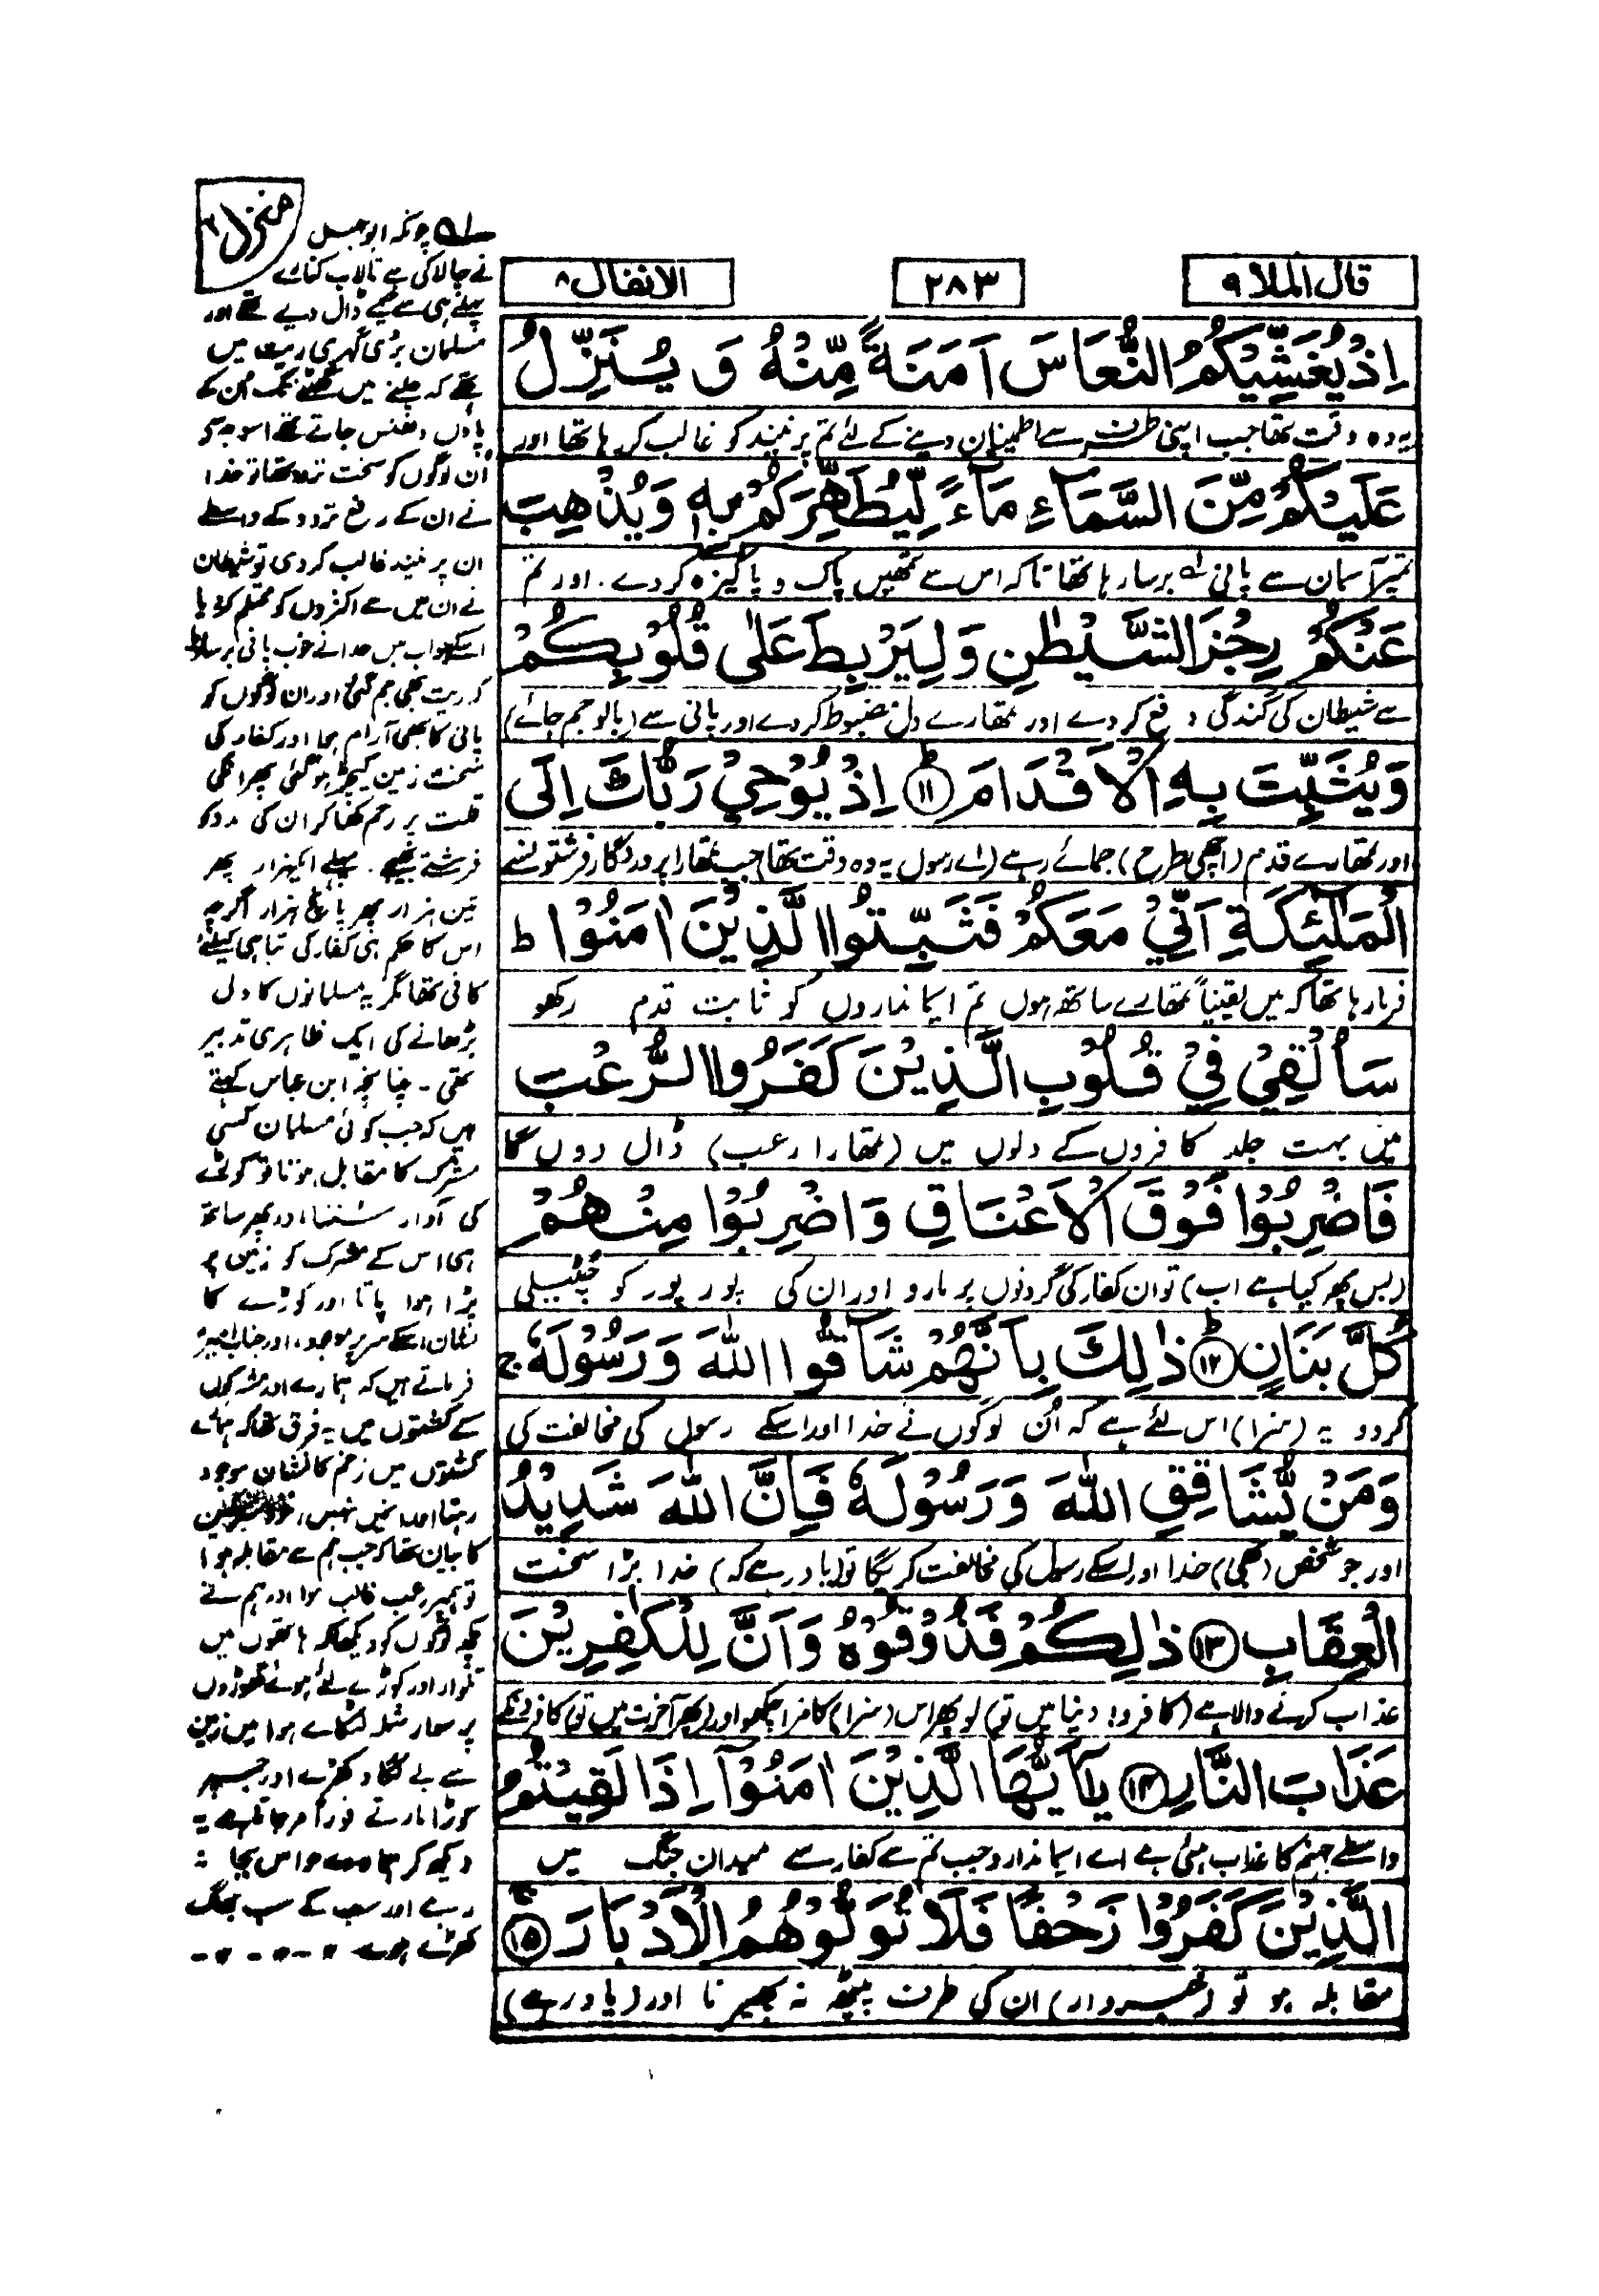 قال الملا ٩
٢٨٣
الانفال ٨
اِذْ يُغَشِّيْكُمُ النُّعَاسَ اَمَنَةً مِّنْهُ وَ يُنَزِّلُ
یہ وہ وقت تھا جب اپنی طرف سے اطمینان دینے کے لئے تم پر نیند کو غالب کر رہا تھا اور
عَلَيْكُمْ مِّنَ السَّمَآءِ مَآءً لِّيُطَهِّرَكُمْ بِهٖ وَيُذْهِبَ
تمپر آسمان سے پانی برسا رہا تھا تاکہ اس سے تمھیں پاک و پاکیزہ کردے . اور تم
عَنْكُمْ رِجْزَ الشَّيْطٰنِ وَلِيَرْبِطَ عَلٰى قُلُوْبِكُمْ
سے شیطان کی گندگی دفع کردے اور تمھارے دل مضبوط کردے اور پانی سے (بالو جم جائے)
وَيُثَبِّتَ بِهِ الْاَقْدَامَ ⑪ اِذْ يُوْحِيْ رَبُّكَ اِلَى
اور تمھارے قدم (اچھی طرح) جمائے رہے (اے رسول یہ وہ وقت تھا) جب تمھارا پروردگار فرشتوں سے
الْمَلٰٓئِكَةِ اَنِّيْ مَعَكُمْ فَثَبِّتُوا الَّذِيْنَ اٰمَنُوْا ط
فرما رہا تھا کہ میں یقیناً تمھارے ساتھ ہوں تم ایمانداروں کو ثابت قدم رکھو
سَاُلْقِيْ فِيْ قُلُوْبِ الَّذِيْنَ كَفَرُوا الرُّعْبَ
میں بہت جلد کافروں کے دلوں میں (تمھارا رعب) ڈال دوں گا
فَاضْرِبُوْا فَوْقَ الْاَعْنَاقِ وَاضْرِبُوْا مِنْهُمْ
(بس پھر کیا ہے اب) تو ان کفار کی گردنوں پر مارو اور ان کی پور پور کو چٹیلی
كُلَّ بَنَانٍ ⑫ ذٰلِكَ بِاَنَّهُمْ شَآقُّوا اللّٰهَ وَرَسُوْلَهٗ ج
کردو یہ (سزا) اس لئے ہے کہ اُن لوگوں نے خدا اور اسکے رسول کی مخالفت کی
وَمَنْ يُّشَاقِقِ اللّٰهَ وَرَسُوْلَهٗ فَاِنَّ اللّٰهَ شَدِيْدُ
اور جو شخص (بھی) خدا اور اسکے رسول کی مخالفت کریگا تو (یاد رہے کہ) خدا بڑا سخت
الْعِقَابِ ⑬ ذٰلِكُمْ فَذُوْقُوْهُ وَاَنَّ لِلْكٰفِرِيْنَ
عذاب کرنے والا ہے (کافرو! دنیا میں تو) لو پھر اس (سزا) کا مزا چکھو اور (پھر آخرت میں تو) کافروں کے
عَذَابَ النَّارِ ⑭ يٰٓاَيُّهَا الَّذِيْنَ اٰمَنُوْٓا اِذَا لَقِيْتُمُ
واسطے جہنم کا عذاب ہی ہے اے ایماندارو جب تم سے کفار سے میدان جنگ میں
الَّذِيْنَ كَفَرُوْا زَحْفًا فَلَا تُوَلُّوْهُمُ الْاَدْبَارَ ⑮
مقابلہ ہو تو (خبردار) ان کی طرف پیٹھ نہ پھیرنا اور (یاد رہے)
منزل ٢
چونکہ ابوجہل
نے چالاکی سے تالاب کنارے
پہلے ہی سے خیمے ڈال دیے تھے اور
مسلمان بڑی گہری ریت میں
تھے کہ چلنے میں گھٹنے تک اُن کے
پاؤں دھنس جاتے تھے اسوجہ سے
اُن لوگوں کو سخت تردد تھا تو خدا
نے ان کے رفع تردد کے واسطے
ان پر نیند غالب کردی تو شیطان
نے ان میں سے اکثروں کو محتلم کردیا
اسکے جواب میں خدا نے خوب پانی برسایا
کہ ریت بھی جم گئی اور ان لوگوں کو
پانی کا بھی آرام ہوا اور کفار کی
سخت زمین کیچڑ ہوگئی پھر انکی
قلت پر رحم کھا کر ان کی مدد کو
فرشتے بھیجے . پہلے ایکہزار پھر
تین ہزار پھر پانچ ہزار اگرچہ
اس کا حکم ہی کفار کی تباہی کیلئے
کافی تھا مگر یہ مسلمانوں کا دل
بڑھانے کی ایک ظاہری تدبیر
تھی - چنانچہ ابن عباس کہتے
ہیں کہ جب کوئی مسلمان کسی
مشرک کا مقابل ہوتا تو کوڑے
کی آواز سنتا اور پھر ساتھ
ہی اس کے مشرک کو زمین پر
پڑا ہوا پاتا اور کوڑے کا
نشان اسکے سر پر موجود، اور جناب امیر
فرماتے ہیں کہ ہمارے اور مشرکوں
کے کشتوں میں یہ فرق تھا کہ ہمارے
کشتوں میں زخم کا نشان موجود
رہتا اور انمیں نہیں،
کا بیان تھا کہ جب ہم سے مقابلہ ہوا
تو ہمپر رعب غالب ہوا اور ہم نے
کچھ لوگوں کو دیکھا کہ ہاتھوں میں
تلوار اور کوڑے لئے ہوئے گھوڑوں
پر سوار شملہ لٹکائے ہوا میں زمین
سے بے لگاؤ کھڑے اور جسپر
کوڑا مارتے فوراً مرجاتا ہے یہ
دیکھ کر ہمارے حواس بجا نہ
رہے اور سب کے سب بھاگ
کھڑے ہوئے